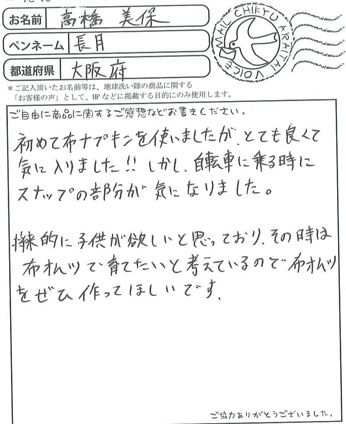 お名前 高橋 美保
ペンネーム 長月
都道府県 大阪府
MAIL CHIKYU ARAITAI VOICE
＊ご記入頂いたお名前等は、地球洗い隊の商品に関する
「お客様の声」として、HPなどに掲載する目的にのみ使用します。
ご自由に商品に関するご感想などお書きください。
初めて布ナプキンを使いましたが、とても良くて
気に入りました!! しかし、自転車に乗る時に
スナップの部分が気になりました。
将来的に子供が欲しいと思っており、その時は
布オムツで育てたいと考えているので布オムツ
をぜひ作ってほしいです。
ご協力ありがとうございました。